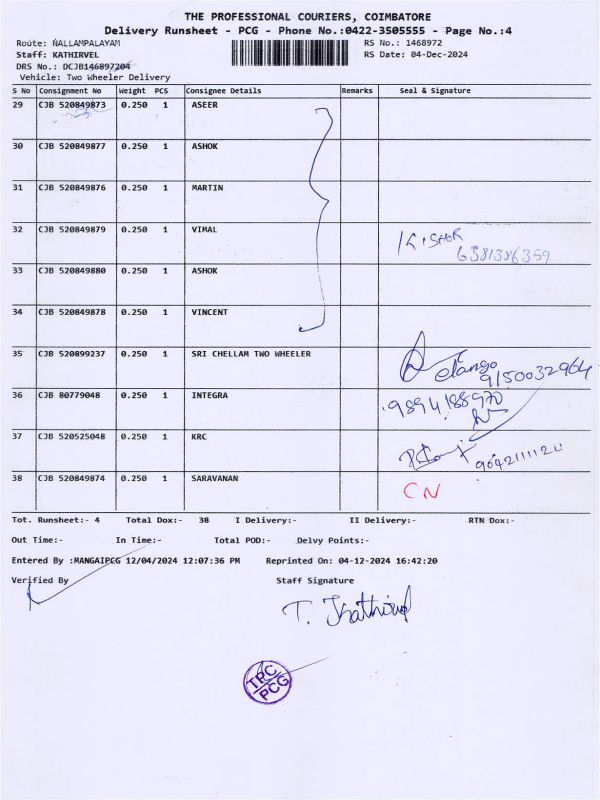 THE PROFESSIONAL COURIERS, COIMBATORE
Delivery Runsheet - PCG - Phone No.:0422-3505555 - Page No.:4
Route: NALLAMPALAYAM RS No.: 1468972
Staff: KATHIRVEL RS Date: 04-Dec-2024
DRS No.: DCJB146897204
Vehicle: Two Wheeler Delivery
S No Consignment No Weight PCS Consignee Details Remarks Seal & Signature
29 CJB 520849873 0.250 1 ASEER
30 CJB 520849877 0.250 1 ASHOK
31 CJB 520849876 0.250 1 MARTIN
32 CJB 520849879 0.250 1 VIMAL
KISHOR
6381386359
33 CJB 520849880 0.250 1 ASHOK
34 CJB 520849878 0.250 1 VINCENT
35 CJB 520899237 0.250 1 SRI CHELLAM TWO WHEELER
elango
9150032964
36 CJB 80779048 0.250 1 INTEGRA
9894188970
37 CJB 520525048 0.250 1 KRC
38 CJB 520849874 0.250 1 SARAVANAN
CN
Tot. Runsheet:- 4 Total Dox:- 38 I Delivery:- II Delivery:- RTN Dox:-
Out Time:- In Time:- Total POD:- Delvy Points:-
Entered By :MANGAIPCG 12/04/2024 12:07:36 PM Reprinted On: 04-12-2024 16:42:20
Verified By Staff Signature
T. Kathirvel
TPC
PCG